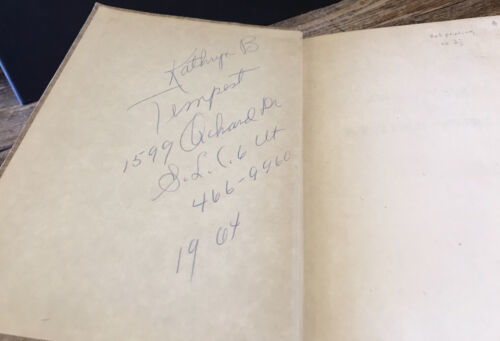 Kathryn B
Tempest
1599 Orchard Dr
S.L.C. 6 Ut
466-9960
1964